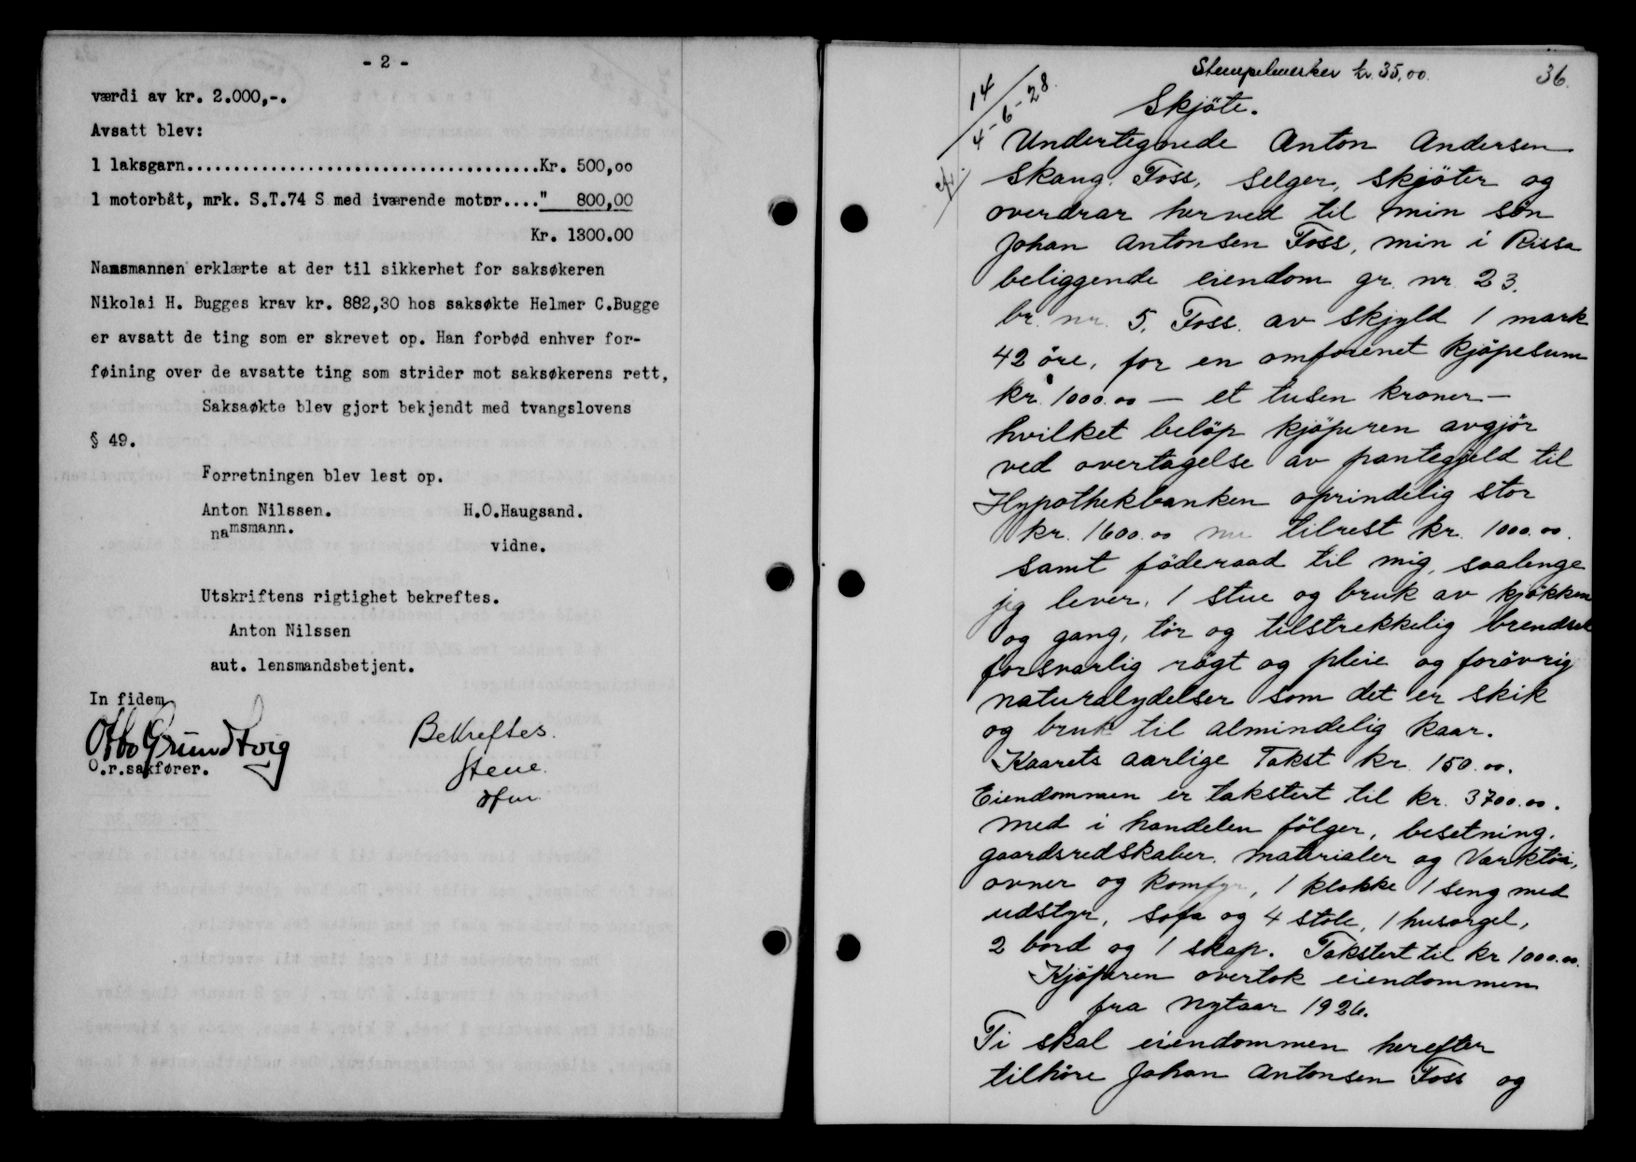 - 2 -
værdi av kr. 2.000,-.
Avsatt blev:
1 laksgarn......................................Kr. 500,oo
1 motorbåt, mrk. S.T.74 S med iværende motor...." 800,00
Kr. 1300.00
Namsmannen erklærte at der til sikkerhet for saksøkeren
Nikolai H. Bugges krav kr. 882,30 hos saksøkte Helmer C.Bugge
er avsatt de ting som er skrevet op. Han forbød enhver for-
føining over de avsatte ting som strider mot saksøkerens rett,
Saksaøkte blev gjort bekjendt med tvangslovens
§ 49.
Forretningen blev lest op.
Anton Nilssen. H.O.Haugsand.
namsmann.
vidne.
Utskriftens rigtighet bekreftes.
Anton Nilssen
aut. lensmandsbetjent.
In fidem
Otto Grundtvig
O.r.sakfører.
Bekreftes.
Stene
Stempelmerker kr 35,00.
36.
14/4-6-28.
Skjöte.
Undertegnede Anton Andersen
Skang. Foss, selger, skjöter og
overdrar herved til min sön
Johan Antonsen Foss, min i Rissa
beliggende eiendom gr. nr. 23.
br. nr. 5. Foss. av skjyld 1 mark
42 öre, for en omforenet kjöpesum
kr. 1000.00 — et tusen kroner —
hvilket belöp kjöperen avgjör
ved overtagelse av pantegjeld til
Hypothekbanken oprindelig stor
kr. 1600.00 nu tilrest kr. 1000.00.
samt föderaad til mig, saalenge
jeg lever. 1 stue og bruk av kjökken
og gang, tör og tilstrekkelig brendsel
forsvarlig rögt og pleie og forövrig
naturalydelser som det er skik
og bruk til almindelig kaar.
Kaarets aarlige Takst kr. 150.00.
Eiendommen er takstert til kr. 3700.00.
Med i handelen fölger, besetning.
gaardsredskaber. materialer og Værktöi,
ovner og komfyr, 1 klokke 1 seng med
udstyr, sofa og 4 stole, 1 husorgel,
2 bord og 1 skap. Takstert til kr 1000.00.
Kjöperen overtok eiendommen
fra nytaar 1926.
Ti skal eiendommen herefter
tilhöre Johan Antonsen Foss og